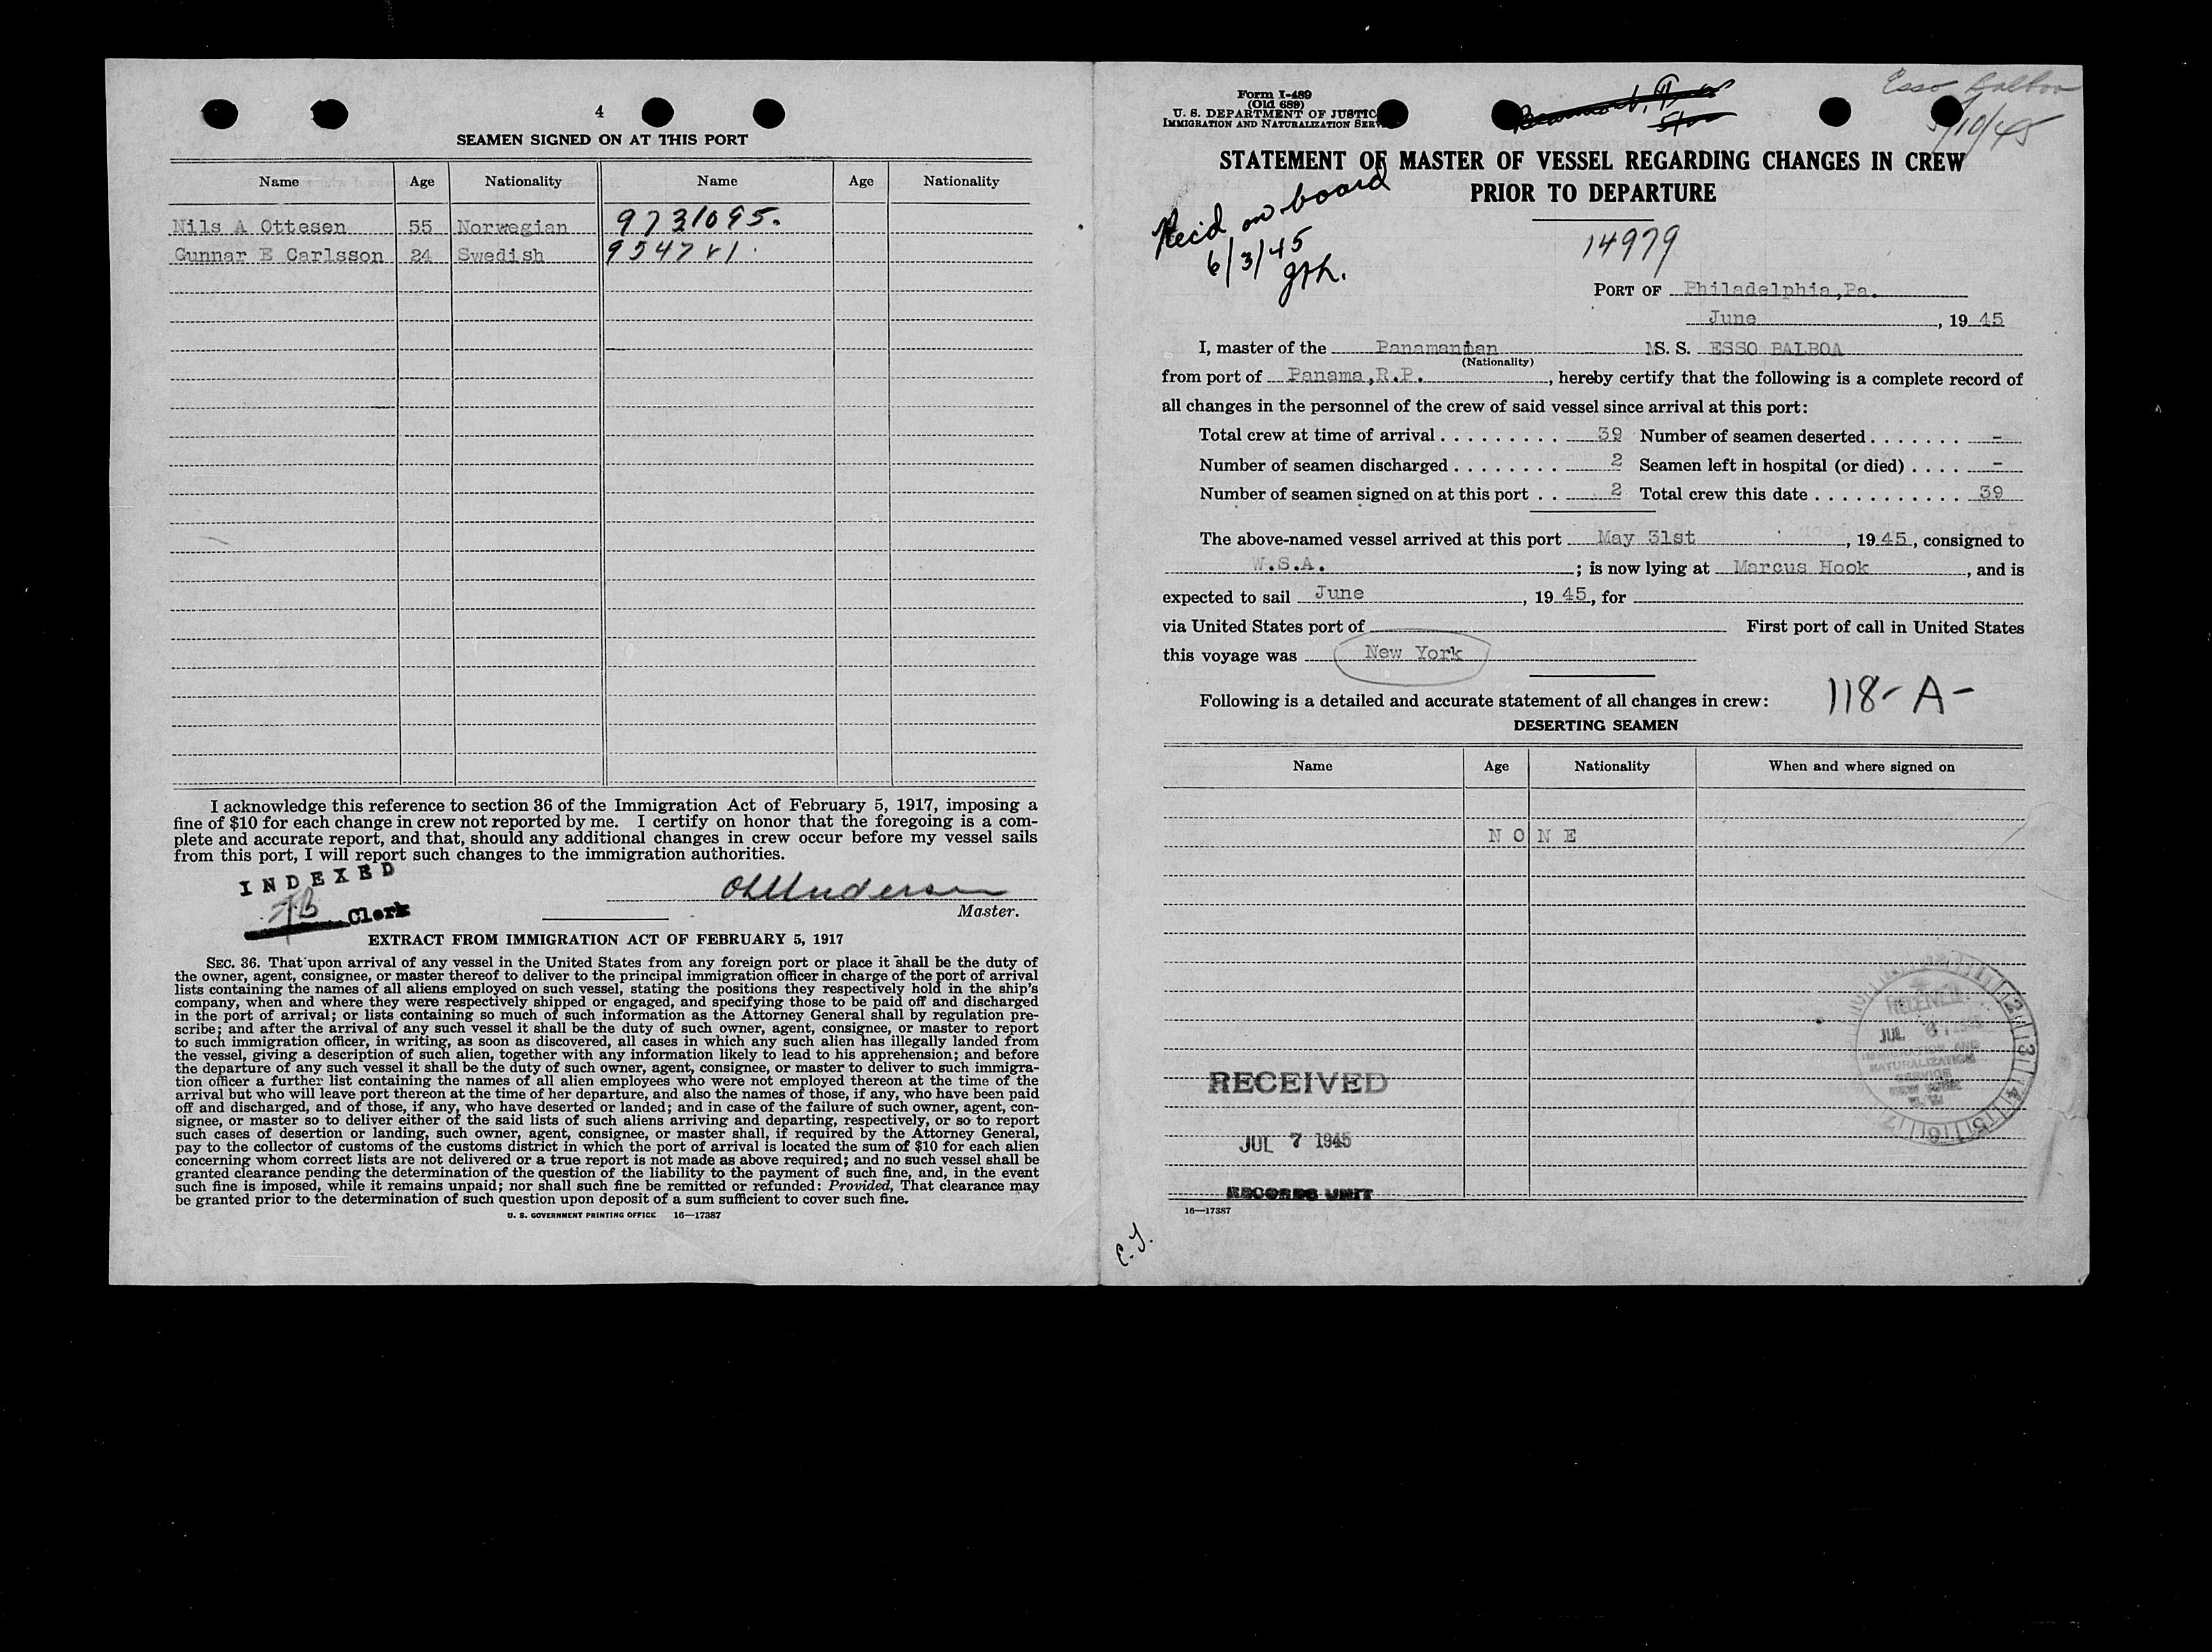 4
SEAMEN SIGNED ON AT THIS PORT
Name Age Nationality Name Age Nationality
Nils A Ottesen 55 Norwegian 9731095.
Gunnar E Carlsson 24 Swedish
I acknowledge this reference to section 36 of the Immigration Act of February 5, 1917, imposing a
fine of $10 for each change in crew not reported by me. I certify on honor that the foregoing is a com-
plete and accurate report, and that, should any additional changes in crew occur before my vessel sails
from this port, I will report such changes to the immigration authorities.
INDEXED
Clerk
Master.
EXTRACT FROM IMMIGRATION ACT OF FEBRUARY 5, 1917
SEC. 36. That upon arrival of any vessel in the United States from any foreign port or place it shall be the duty of
the owner, agent, consignee, or master thereof to deliver to the principal immigration officer in charge of the port of arrival
lists containing the names of all aliens employed on such vessel, stating the positions they respectively hold in the ship's
company, when and where they were respectively shipped or engaged, and specifying those to be paid off and discharged
in the port of arrival; or lists containing so much of such information as the Attorney General shall by regulation pre-
scribe; and after the arrival of any such vessel it shall be the duty of such owner, agent, consignee, or master to report
to such immigration officer, in writing, as soon as discovered, all cases in which any such alien has illegally landed from
the vessel, giving a description of such alien, together with any information likely to lead to his apprehension; and before
the departure of any such vessel it shall be the duty of such owner, agent, consignee, or master to deliver to such immigra-
tion officer a further list containing the names of all alien employees who were not employed thereon at the time of the
arrival but who will leave port thereon at the time of her departure, and also the names of those, if any, who have been paid
off and discharged, and of those, if any, who have deserted or landed; and in case of the failure of such owner, agent, con-
signee, or master so to deliver either of the said lists of such aliens arriving and departing, respectively, or so to report
such cases of desertion or landing, such owner, agent, consignee, or master shall, if required by the Attorney General,
pay to the collector of customs of the customs district in which the port of arrival is located the sum of $10 for each alien
concerning whom correct lists are not delivered or a true report is not made as above required; and no such vessel shall be
granted clearance pending the determination of the question of the liability to the payment of such fine, and, in the event
such fine is imposed, while it remains unpaid; nor shall such fine be remitted or refunded: Provided, That clearance may
be granted prior to the determination of such question upon deposit of a sum sufficient to cover such fine.
U. S. GOVERNMENT PRINTING OFFICE 16—17387
Form I-489
(Old 689)
U. S. DEPARTMENT OF JUSTIC
IMMIGRATION AND NATURALIZATION SERV
Esso Balboa
5/10/45
STATEMENT OF MASTER OF VESSEL REGARDING CHANGES IN CREW
PRIOR TO DEPARTURE
Rec'd on board
6/3/45
14979
PORT OF Philadelphia,Pa.
June , 19 45
I, master of the Panamanian S. S. ESSO BALBOA
(Nationality)
from port of Panama,R.P. , hereby certify that the following is a complete record of
all changes in the personnel of the crew of said vessel since arrival at this port:
Total crew at time of arrival . . . . . . . . . 39 Number of seamen deserted . . . . . . . -
Number of seamen discharged . . . . . . . . 2 Seamen left in hospital (or died) . . . . -
Number of seamen signed on at this port . . 2 Total crew this date . . . . . . . . . . . . 39
The above-named vessel arrived at this port May 31st , 19 45 , consigned to
W.S.A. ; is now lying at Marcus Hook , and is
expected to sail June , 19 45 , for
via United States port of First port of call in United States
this voyage was New York
Following is a detailed and accurate statement of all changes in crew: 118-A-
DESERTING SEAMEN
Name Age Nationality When and where signed on
NONE
RECEIVED
JUL 7 1945
RECORDS UNIT
RECEIVED
JUL
IMMIGRATION AND
NATURALIZATION
SERVICE
NEW YORK
N. Y.
16—17387